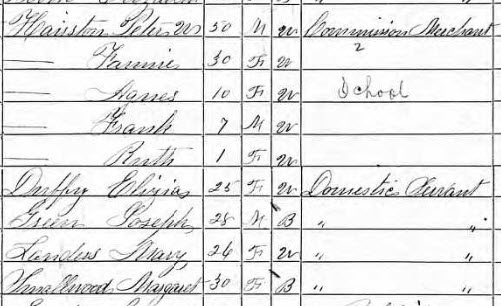 Hairston Peter W 50 M W Commission Merchant
2
— Fannie 30 F W
— Agnes 10 F W School
— Frank 7 M W
— Ruth 1 F W
Duffry Elizia 25 F W Domestic Servant
Green Joseph 28 M B " "
Landers Mary 26 F W " "
Smallwood Margaret 30 F B " "